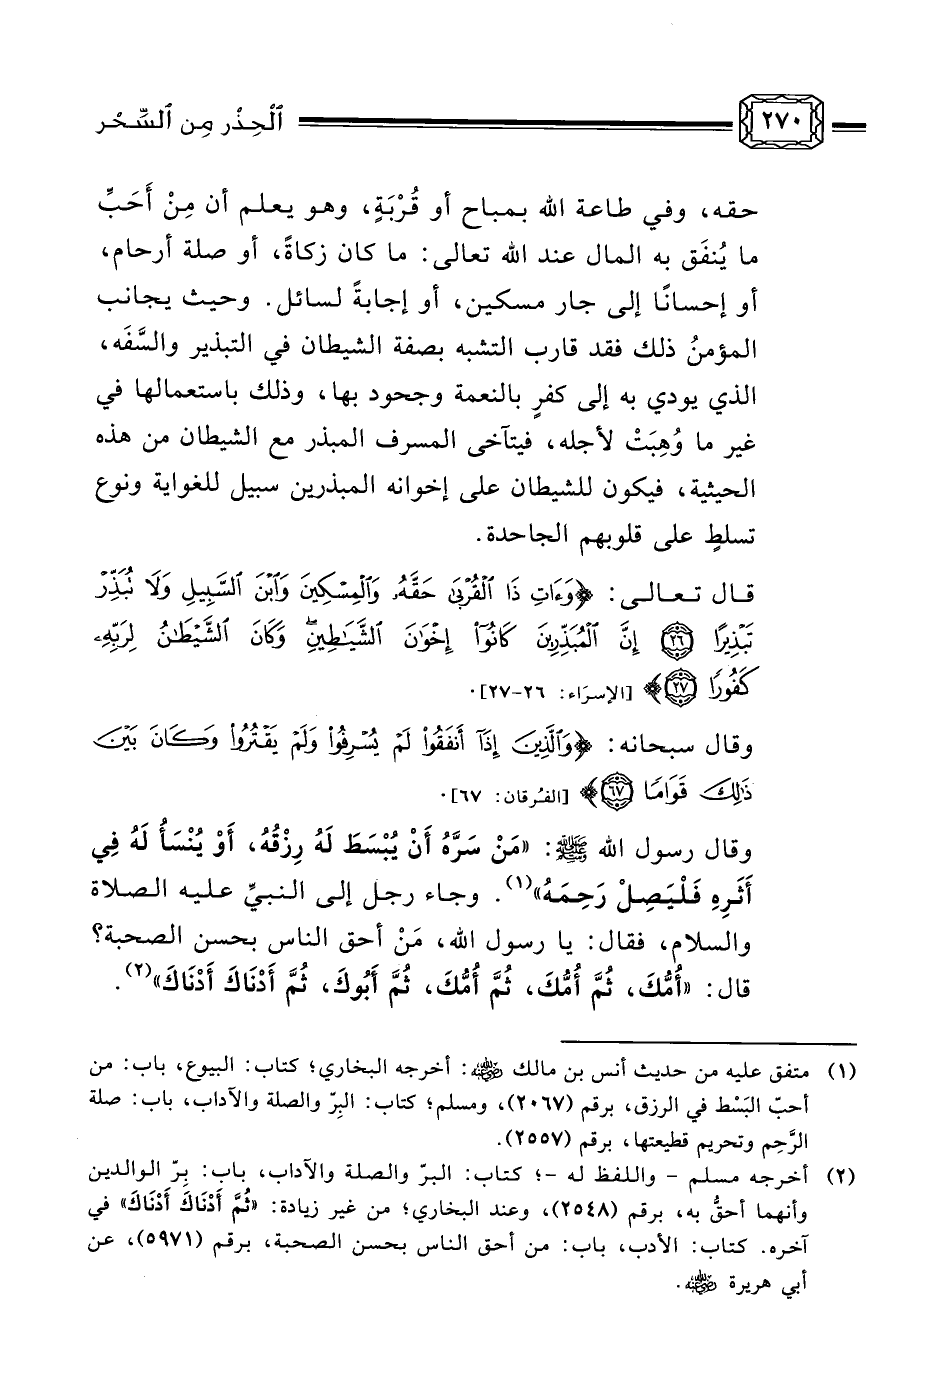 ٢٧٠ ٱلْحِذْر مِن ٱلسِّحْر
حقه، وفي طاعة الله بمباح أو قُرْبَةٍ، وهو يعلم أن مِنْ أَحَبِّ
ما يُنفَق به المال عند الله تعالى: ما كان زكاةً، أو صلة أرحام،
أو إحسانًا إلى جار مسكين، أو إجابةً لسائل. وحيث يجانب
المؤمنُ ذلك فقد قارب التشبه بصفة الشيطان في التبذير والسَّفَه،
الذي يودي به إلى كفرٍ بالنعمة وجحود بها، وذلك باستعمالها في
غير ما وُهِبَتْ لأجله، فيتآخى المسرف المبذر مع الشيطان من هذه
الحيثية، فيكون للشيطان على إخوانه المبذرين سبيل للغواية ونوع
تسلطٍ على قلوبهم الجاحدة.
قال تعالى: ﴿وَءَاتِ ذَا ٱلْقُرْبَىٰ حَقَّهُۥ وَٱلْمِسْكِينَ وَٱبْنَ ٱلسَّبِيلِ وَلَا تُبَذِّرْ
تَبْذِيرًا ٢٦ إِنَّ ٱلْمُبَذِّرِينَ كَانُوٓا۟ إِخْوَٰنَ ٱلشَّيَٰطِينِ ۖ وَكَانَ ٱلشَّيْطَٰنُ لِرَبِّهِۦ
كَفُورًا ٢٧﴾ [الإسرَاء: ٢٦-٢٧].
وقال سبحانه: ﴿وَٱلَّذِينَ إِذَآ أَنفَقُوا۟ لَمْ يُسْرِفُوا۟ وَلَمْ يَقْتُرُوا۟ وَكَانَ بَيْنَ
ذَٰلِكَ قَوَامًا ٦٧﴾ [الفُرقان: ٦٧].
وقال رسول الله ﷺ: «مَنْ سَرَّهُ أَنْ يُبْسَطَ لَهُ رِزْقُهُ، أَوْ يُنْسَأُ لَهُ فِي
أَثَرِهِ فَلْيَصِلْ رَحِمَهُ»(١). وجاء رجل إلى النبيِّ عليه الصلاة
والسلام، فقال: يا رسول الله، مَنْ أحق الناس بحسن الصحبة؟
قال: «أُمُّكَ، ثُمَّ أُمُّكَ، ثُمَّ أُمُّكَ، ثُمَّ أَبُوكَ، ثُمَّ أَدْنَاكَ أَدْنَاكَ»(٢).
(١) متفق عليه من حديث أنس بن مالك رضي الله عنه: أخرجه البخاري؛ كتاب: البيوع، باب: من
أحبّ البَسْط في الرزق، برقم (٢٠٦٧)، ومسلم؛ كتاب: البِرّ والصلة والآداب، باب: صلة
الرَّحِم وتحريم قطيعتها، برقم (٢٥٥٧).
(٢) أخرجه مسلم - واللفظ له -؛ كتاب: البرّ والصلة والآداب، باب: بِرّ الوالدين
وأنهما أحقُّ به، برقم (٢٥٤٨)، وعند البخاري؛ من غير زيادة: «ثُمَّ أَدْنَاكَ أَدْنَاكَ» في
آخره. كتاب: الأدب، باب: من أحق الناس بحسن الصحبة، برقم (٥٩٧١)، عن
أبي هريرة رضي الله عنه.